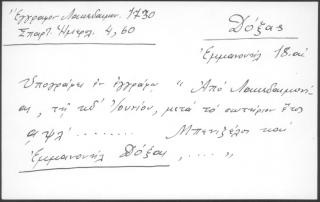 Ἔγγραφον Λακεδαιμον. 1730
Σπαρτ. Ἡμερολ. 4, 60
Δόξας
Ἐμμανουήλ 18. αἰ
Ὑπογράφει ἐν ἐγγράφῳ "Ἀπό Λακεδαιμονί-
ας, τῇ κδ' Ἰουνίου, μετά τό σωτήριον ἔτος
αψλ' ........ Μπενιζέλος καί
Ἐμμανουήλ Δόξας, .... "